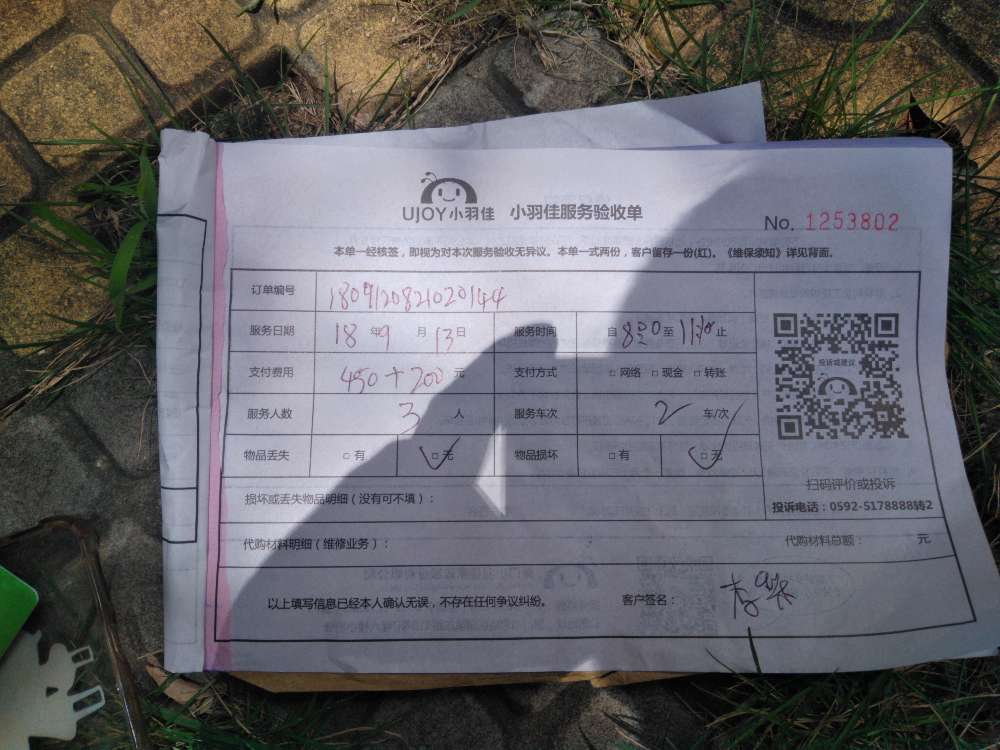 UJOY小羽佳 小羽佳服务验收单
No. 1253802
本单一经核签，即视为对本次服务验收无异议。本单一式两份，客户留存一份(红)。《维保须知》详见背面。
订单编号 1809120821020144
服务日期 18 年 9 月 13 日 服务时间 自 8:00 至 11:30 止
支付费用 450+200 元 支付方式 □ 网络 □ 现金 □ 转账
服务人数 3 人 服务车次 2 车/次
物品丢失 □ 有 □ 无 物品损坏 □ 有 □ 无
投诉或建议
扫码评价或投诉
投诉电话：0592-5178888转2
损坏或丢失物品明细（没有可不填）：
代购材料明细（维修业务）： 代购材料总额： 元
以上填写信息已经本人确认无误，不存在任何争议纠纷。 客户签名：